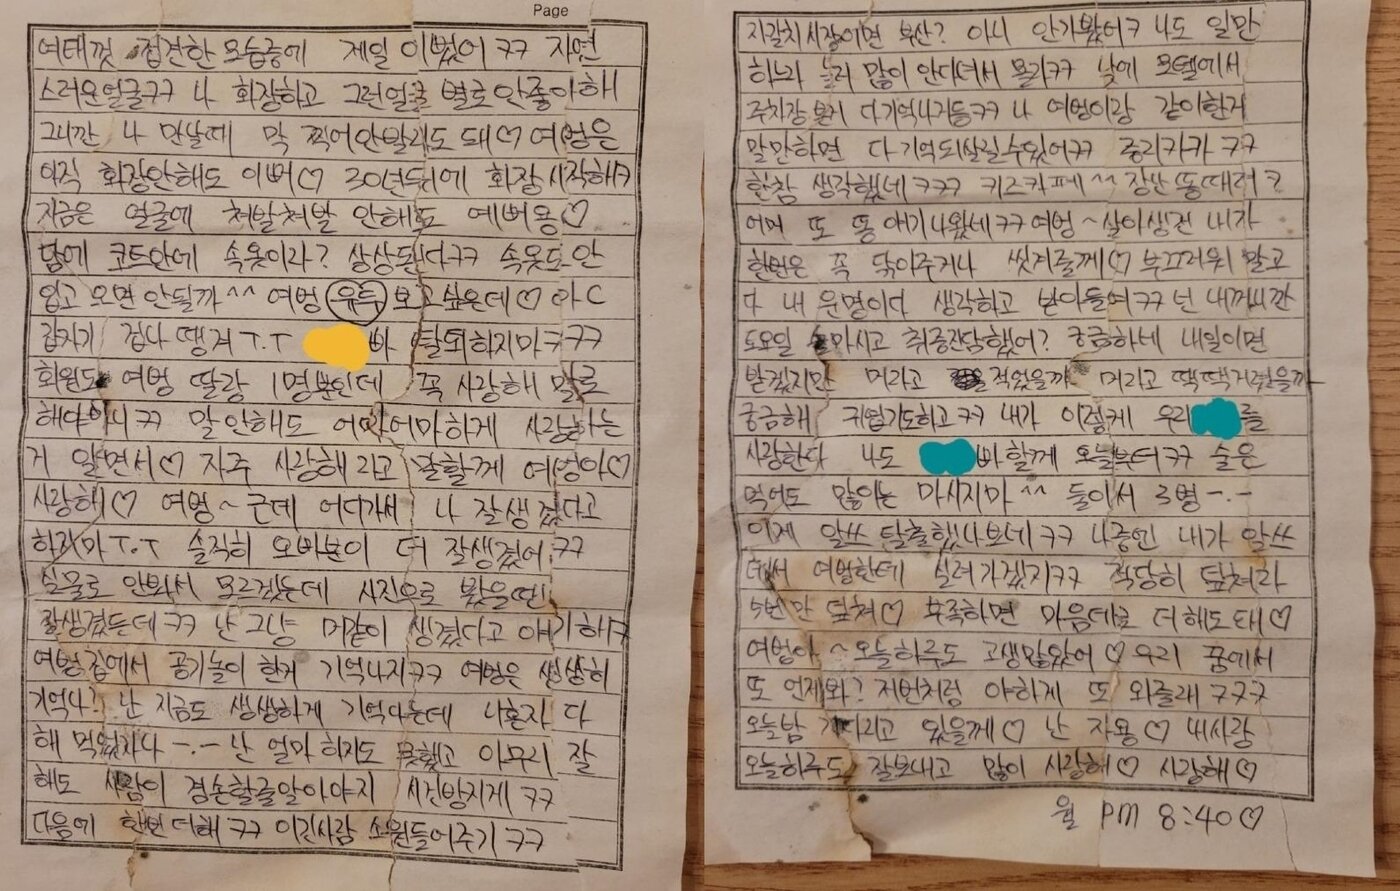 Page
여태껏 접견한 모습중에 제일 이뻤어 ㅋㅋ 자연
스러운얼굴ㅋㅋ 나 화장하고 그런얼굴 별로 안좋아해
그니깐 나 만날때 막 찍어안발라도 돼♡ 여벙은
아직 화장안해도 이뻐♡ 30년뒤에 화장시작해ㅋ
지금은 얼굴에 처발처발 안해도 예뻐용♡
담에 코트안에 속옷이라? 상상된다ㅋㅋ 속옷도 안
입고 오면 안될까^^ 여벙 보고싶은데♡ 아C
갑자기 겁나 땡겨 T.T 빠 탈퇴하지마ㅋㅋㅋ
회원도 여벙 딸랑 1명뿐인데 꼭 사랑해 말로
해야아니ㅋㅋ 말 안해도 어마어마하게 사랑하는
거 알면서♡ 자주 사랑해라고 말할께 여벙아♡
사랑해♡ 여벙~ 근데 어디가서 나 잘생겼다고
하지마T.T 솔직히 오빠분이 더 잘생겼어ㅋㅋ
실물로 안봐서 모르겠는데 사진으로 봤을땐
잘생겼든데ㅋㅋ 난 그냥 머같이 생겼다고 얘기해ㅋ
여벙집에서 공기놀이 한게 기억나지ㅋㅋ 여벙은 생생히
기억나? 난 지금도 생생하게 기억나는데 나혼자 다
해 먹었자나 -.- 난 얼마 하지도 못했고 아무리 잘
해도 사람이 겸손할줄알아야지 시건방지게 ㅋㅋ
다음에 한번 더해 ㅋㅋ 이긴사람 소원들어주기 ㅋㅋ
자갈치시장이면 부산? 아니 안가봤어ㅋ 나도 일만
하느라 놀러 많이 안다녀서 몰라ㅋㅋ 낮에 모텔에서
주차장 다기억나거든ㅋㅋ 나 여벙이랑 같이한거
말만하면 다 기억되살릴수있어ㅋㅋ 종리카카 ㅋㅋ
한참 생각했네ㅋㅋㅋ 키즈카페^^ 장난 똥때려?
어머 또 똥 얘기나왔네ㅋㅋ여벙~ 살이생긴 내가
한번은 꼭 닦아주거나 씻겨줄께♡ 부끄러워 말고
다 내 운명이다 생각하고 받아들여ㅋㅋ넌 내꺼니깐
토요일 술마시고 취중진담했어? 궁금하네 내일이면
받겠지만 머라고 적었을까 머라고 땍땍거렸을까
궁금해 귀엽기도하고ㅋㅋ 내가 이렇게 우리 를
사랑한다 나도 빠할께 오늘부터ㅋㅋ 술은
먹어도 많이는 마시지마^^ 둘이서 3병 -.-
이제 알쓰 탈출했나보네ㅋㅋ 나중엔 내가 알쓰
돼서 여벙한테 실려가겠지ㅋㅋ 적당히 덮쳐라
5번만 덮쳐♡ 부족하면 마음대로 더해도돼♡
여벙아~오늘하루도 고생많았어♡우리 꿈에서
또 언제봐? 저번처럼 야하게 또 와줄래 ㅋㅋㅋ
오늘밤 기다리고 있을께♡ 난 자용♡ 내사랑
오늘하루도 잘보내고 많이 사랑해♡ 사랑해♡
월 PM 8:40♡